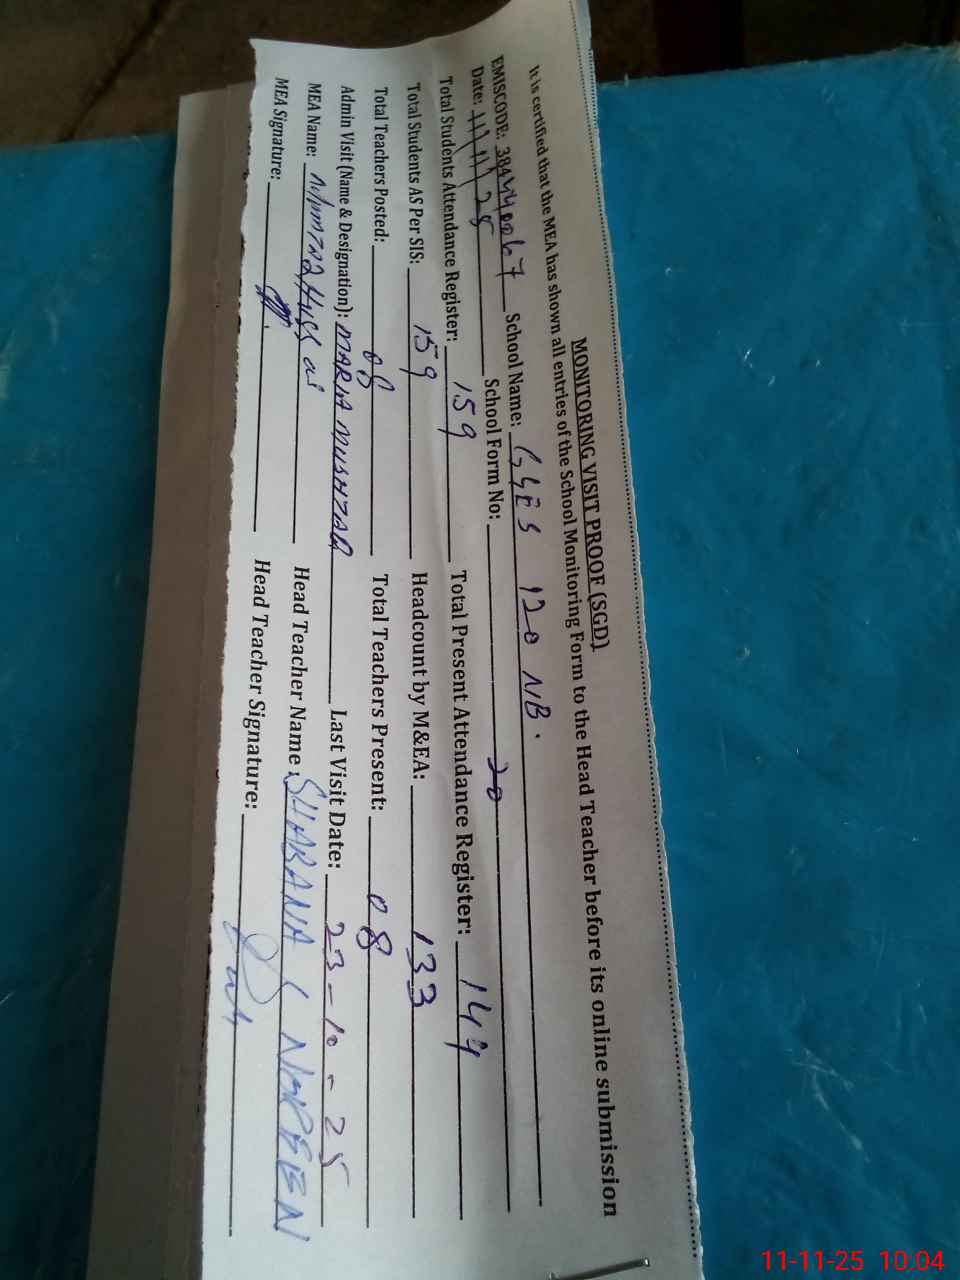 MONITORING VISIT PROOF (SGD)
It is certified that the MEA has shown all entries of the School Monitoring Form to the Head Teacher before its online submission
EMISCODE: 38440067 School Name: GGES 120 NB.
Date: 11/11/25 School Form No: 20
Total Students Attendance Register: 159 Total Present Attendance Register: 144
Total Students AS Per SIS: 159 Headcount by M&EA: 133
Total Teachers Posted: 08 Total Teachers Present: 08
Admin Visit (Name & Designation): MARIA MUSHTAQ Last Visit Date: 23-10-25
MEA Name: Head Teacher Name: SHABANA NOREEN
MEA Signature: Head Teacher Signature:
11-11-25 10:04